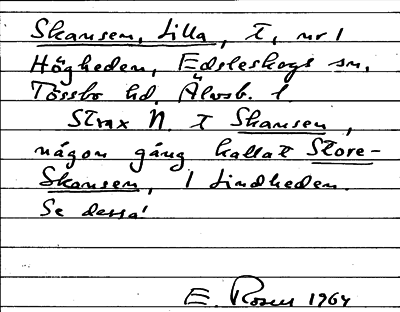 Skansen, Lilla, t, nr 1
Högheden, Edsleskogs sn,
Tössbo hd, Älvsb. l.
Strax N. t Skansen,
någon gång kallat Store-
Skansen, 1 Lindheden.
Se dessa!
E. Rosen 1964